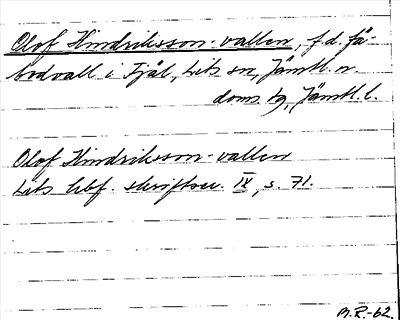 Olof Hindriksson-vallen, f.d. fä-
bodvall i Fjäl, Lits sn, Jämtl. n.
doms. tg, Jämtl. l.
Olof Hindriksson-vallen
Lits hbf. skriftser. IX, s. 71.
M.R.-62.